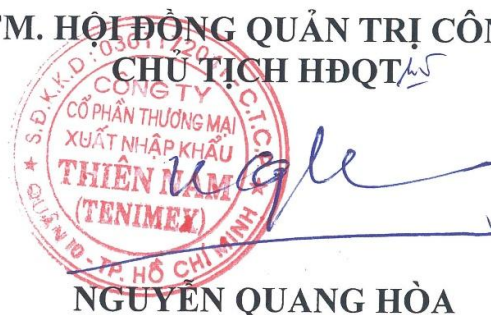 TM. HỘI ĐỒNG QUẢN TRỊ CÔN
CHỦ TỊCH HĐQT
CÔNG TY
CỔ PHẦN THƯƠNG MẠI
XUẤT NHẬP KHẨU
THIÊN NAM
(TENIMEX)
QUẬN 10 - TP. HỒ CHÍ MINH
NGUYỄN QUANG HÒA